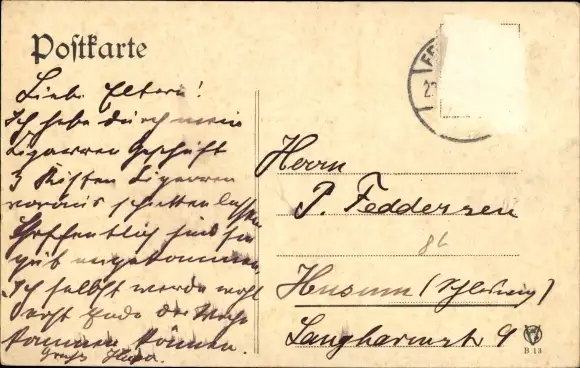 Postkarte
Liebe Eltern!
Ich habe durch mein
Zigarren Geschäft
3 Kisten Zigarren
voraus schicken lassen
Hoffentlich sind sie
gut angekommen.
Ich selbst werde wohl
erst Ende der Woche
kommen können.
Gruß
Herrn
P. Feddersen
86
Husum (Schleswig)
Langharmstr 9
B 13